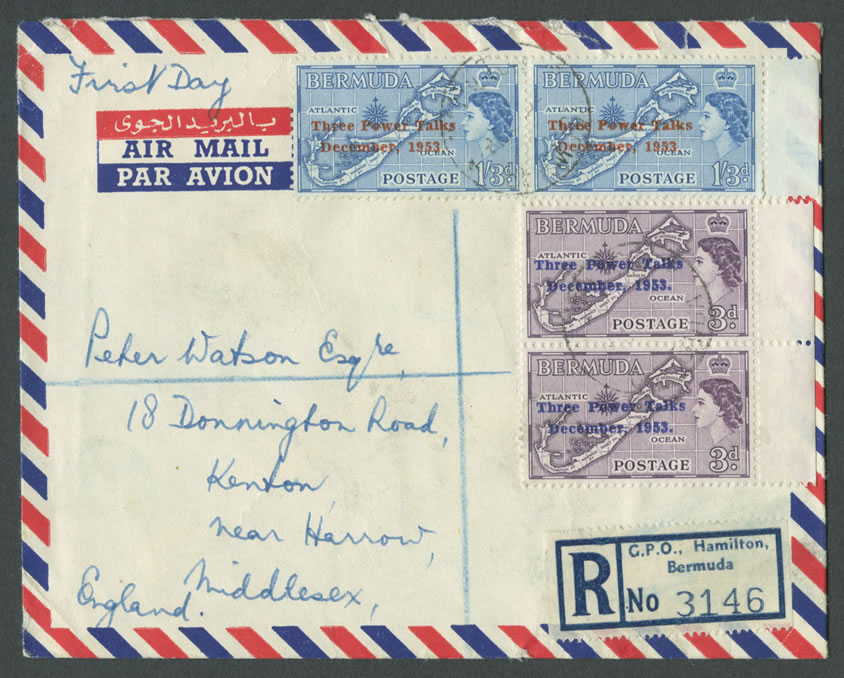 First Day
بالبريد الجوى
AIR MAIL
PAR AVION
BERMUDA
ATLANTIC
Three Power Talks
December, 1953.
OCEAN
POSTAGE
1/3d.
BERMUDA
ATLANTIC
Three Power Talks
December, 1953.
OCEAN
POSTAGE
1/3d.
BERMUDA
ATLANTIC
Three Power Talks
December, 1953.
OCEAN
POSTAGE
3d.
BERMUDA
ATLANTIC
Three Power Talks
December, 1953.
OCEAN
POSTAGE
3d.
Peter Watson Esqre,
18 Donnington Road,
Kenton,
near Harrow,
Middlesex,
England.
R
G.P.O., Hamilton,
Bermuda
No 3146